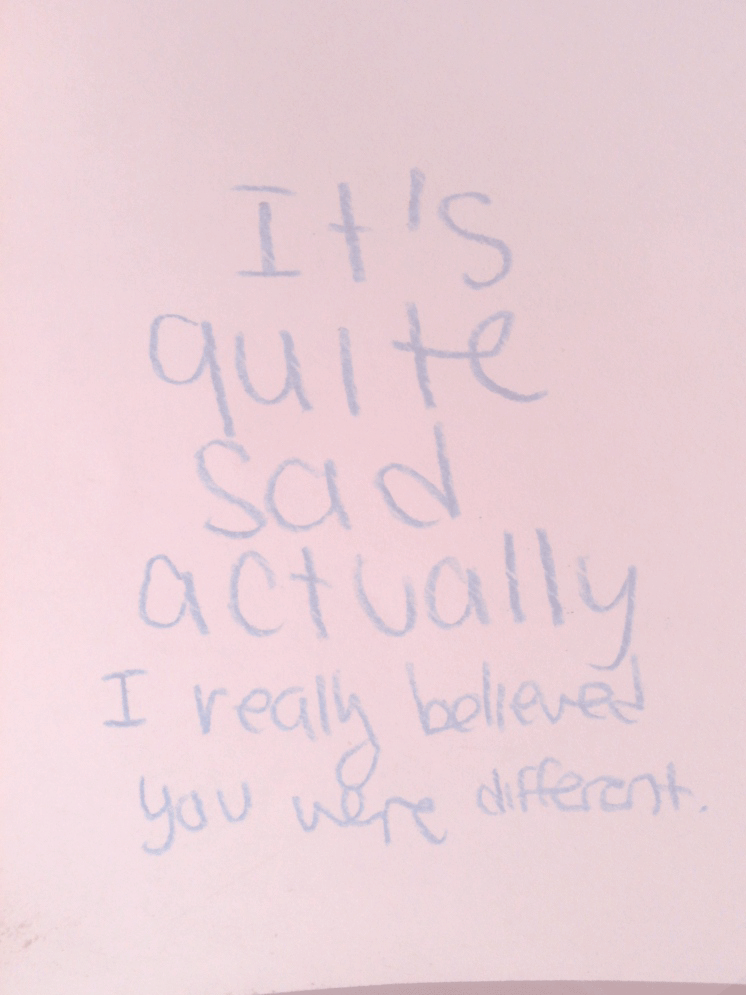 It's
quite
sad
actually
I really believed
you were different.